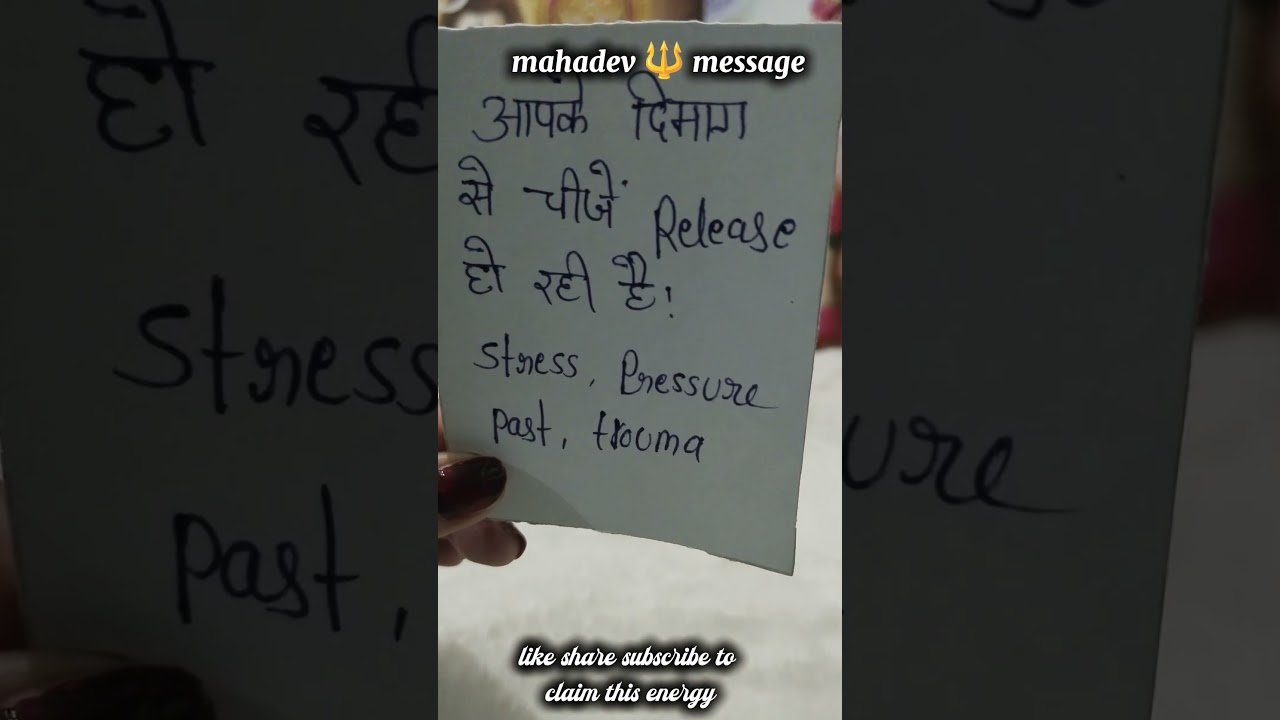 mahadev 🔱 message
आपके दिमाग
से चीजें Release
हो रही है!
stress, Pressure
past, trouma
like share subscribe to
claim this energy